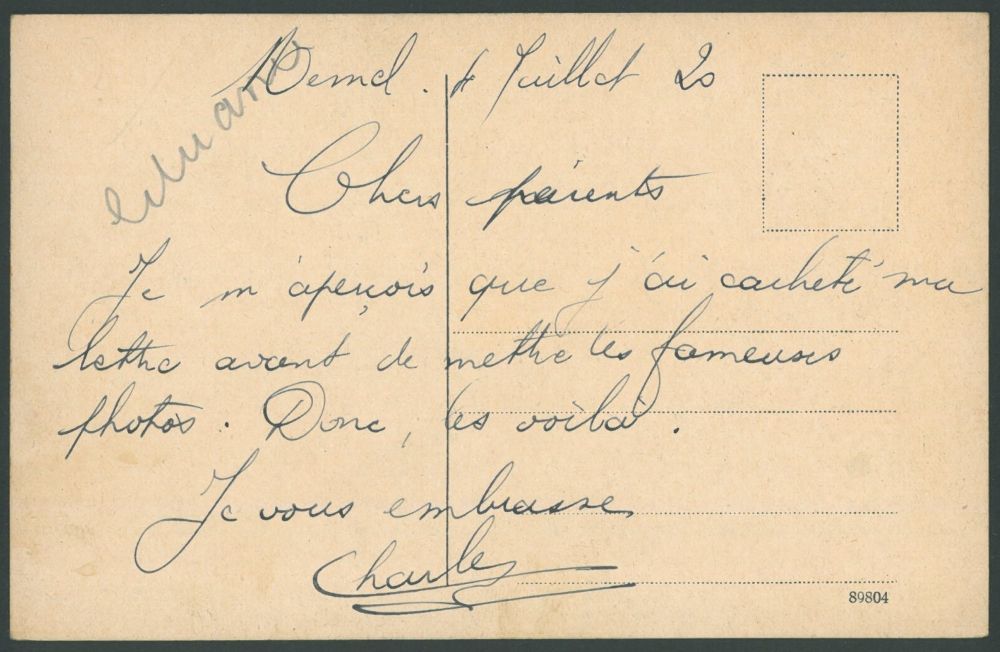 Memel. 4 Juillet 20
Chers parents
Je m'aperçois que j'ai cacheté ma
lettre avant de mettre les fameuses
photos. Donc, les voilà.
Je vous embrasse
Charles
89804